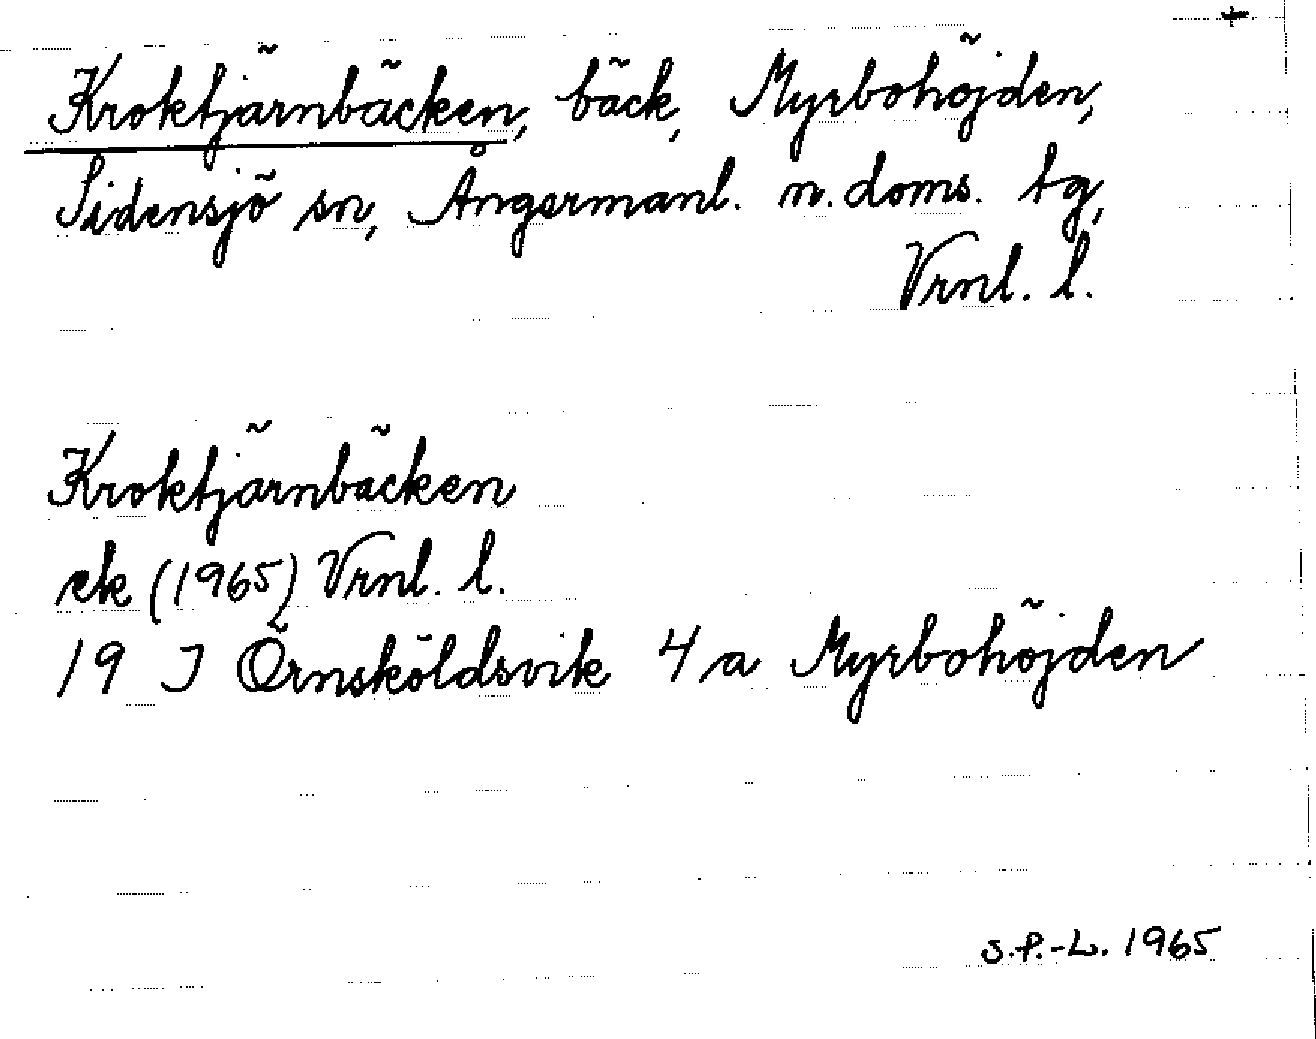 +
Kroktjärnbäcken, bäck, Myrbohöjden,
Sidensjö sn, Ångermanl. n. doms. tg,
Vrnl. l.
Kroktjärnbäcken
ek (1965) Vrnl. l.
19 J Örnsköldsvik 4 a Myrbohöjden
S.P.-L. 1965